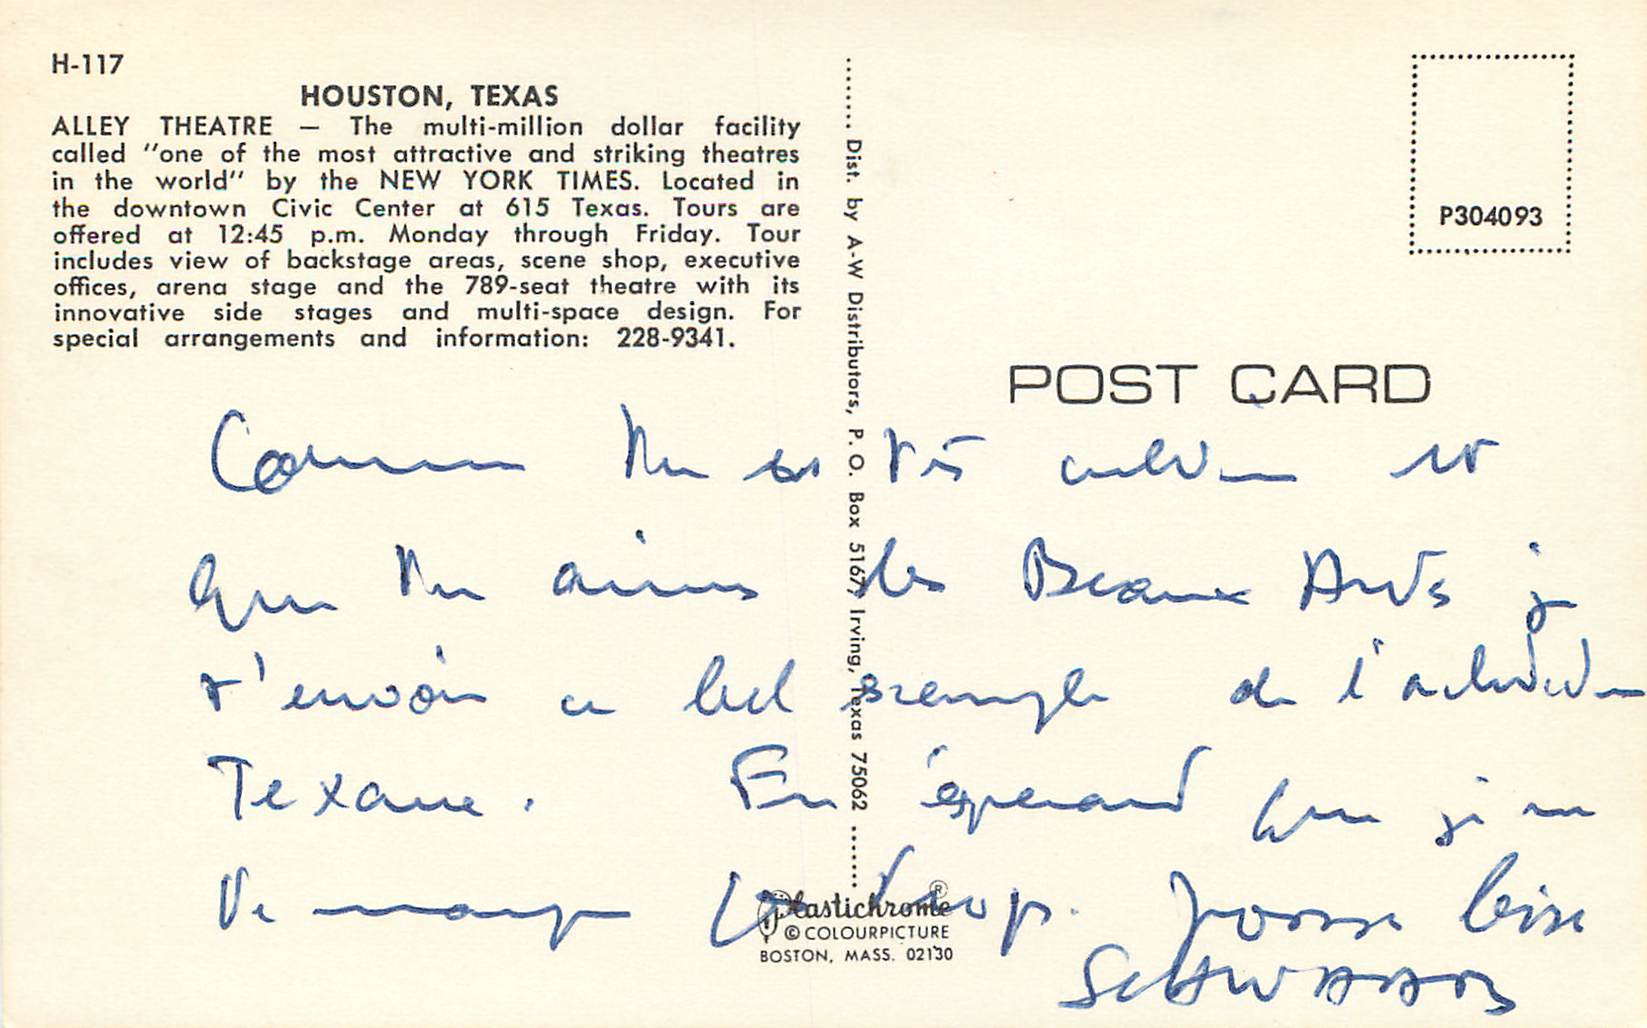 H-117
HOUSTON, TEXAS
ALLEY THEATRE — The multi-million dollar facility
called "one of the most attractive and striking theatres
in the world" by the NEW YORK TIMES. Located in
the downtown Civic Center at 615 Texas. Tours are
offered at 12:45 p.m. Monday through Friday. Tour
includes view of backstage areas, scene shop, executive
offices, arena stage and the 789-seat theatre with its
innovative side stages and multi-space design. For
special arrangements and information: 228-9341.
Dist. by A-W Distributors, P. O. Box 5167, Irving, Texas 75062
P304093
POST CARD
Comme tu es très et
que tu aimes les Beaux Arts je
t'envoie ce bel exemple de l'
Texane. En espérant que je ne
te manque pas trop. grosse bise
Plastichrome ®
© COLOURPICTURE
BOSTON, MASS. 02130